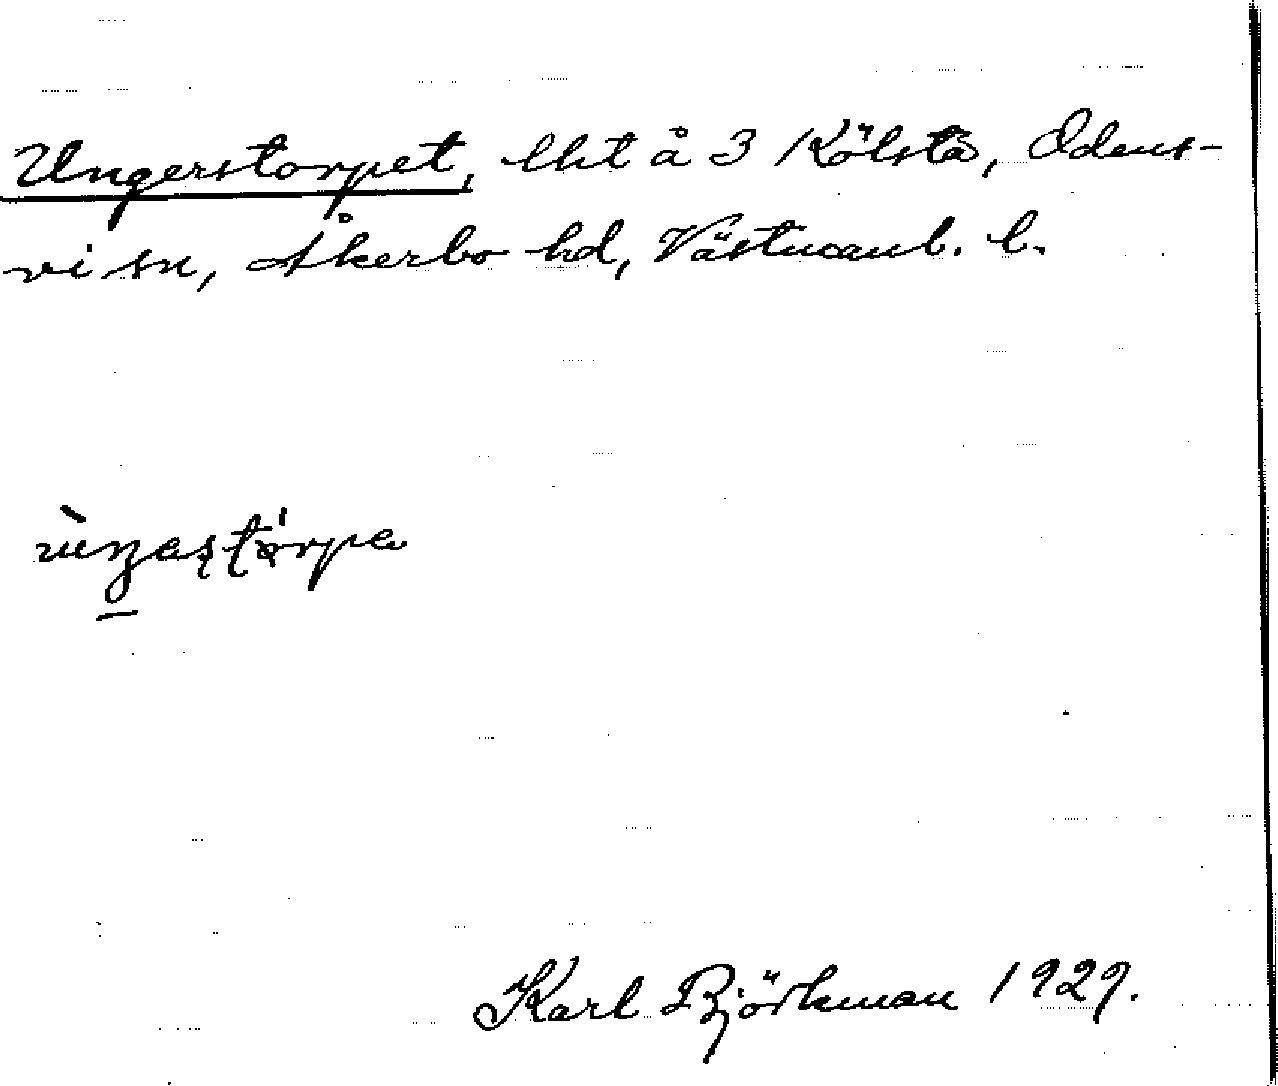 Ungerstorpet, lht å 3 Kölsta, Odens-
vi sn, Åkerbo hd, Västmanl. l.
Karl Björkman 1929.